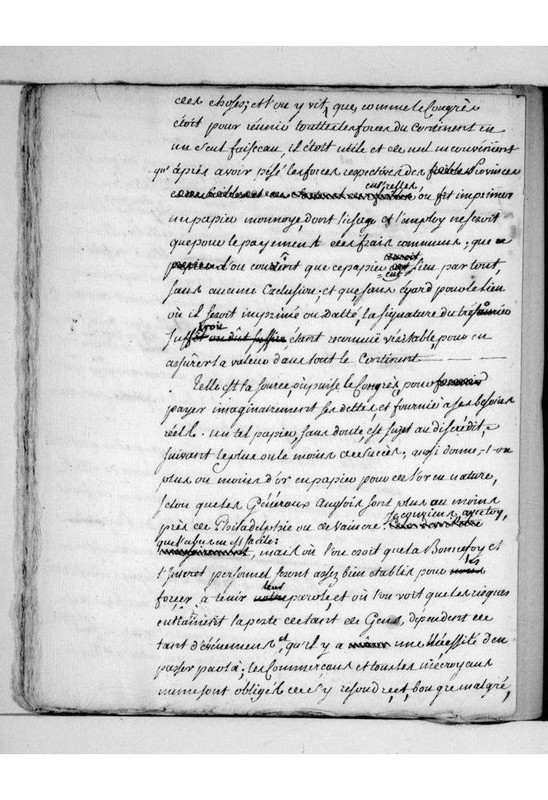 ces choses; et l'on y vit, que, comme le Congrès
étoit pour réunir touttes les forces du Continent en
un seul faisceau, il étoit utile et de nul inconvénient
qu' après avoir pésé les forces respectives des Provinces
entr'elles, on fit imprimer
un papier monnoye, dont l'usage et l'employ ne seroit
que pour le payement des frais communs; que
l'on convînt que ce papier eut lieu par tout,
sans aucune Exclusion; et que sans égard pour le lieu
où il seroit imprimé ou datté, la signature du trésorier
étant reconnüe véritable pour en
assûrer la valeur dans tout le Continent.
Telle est la source, où puise le Congrès, pour
payer imaginairement ses dettes et fournir à ses besoins
réels. Un tel papier, sans doute, est sujet au discrédit,
suivant le plus ou le moins de succès; aussi donne-t-on
plus ou moins d'or en papier pour de l'or en nature,
selon que les Généraux Anglois sont plus ou moins
près de Philadelphie ou de vaincre.
que l'abus en est facile:
mais où l'on croit que la Bonnefoy et
l'Interet personnel seront assez bien etablis pour les
forcer à tenir leur parole, et où l'on voit que les risques
entrainent la perte de tant de Gens, dependent de
tant d'événemens et qu'il y a une nécessité d'en
passer par là; les Commerçans et tous les mécroyans
même sont obligés de s'y resoudre, et, bon gré malgré,